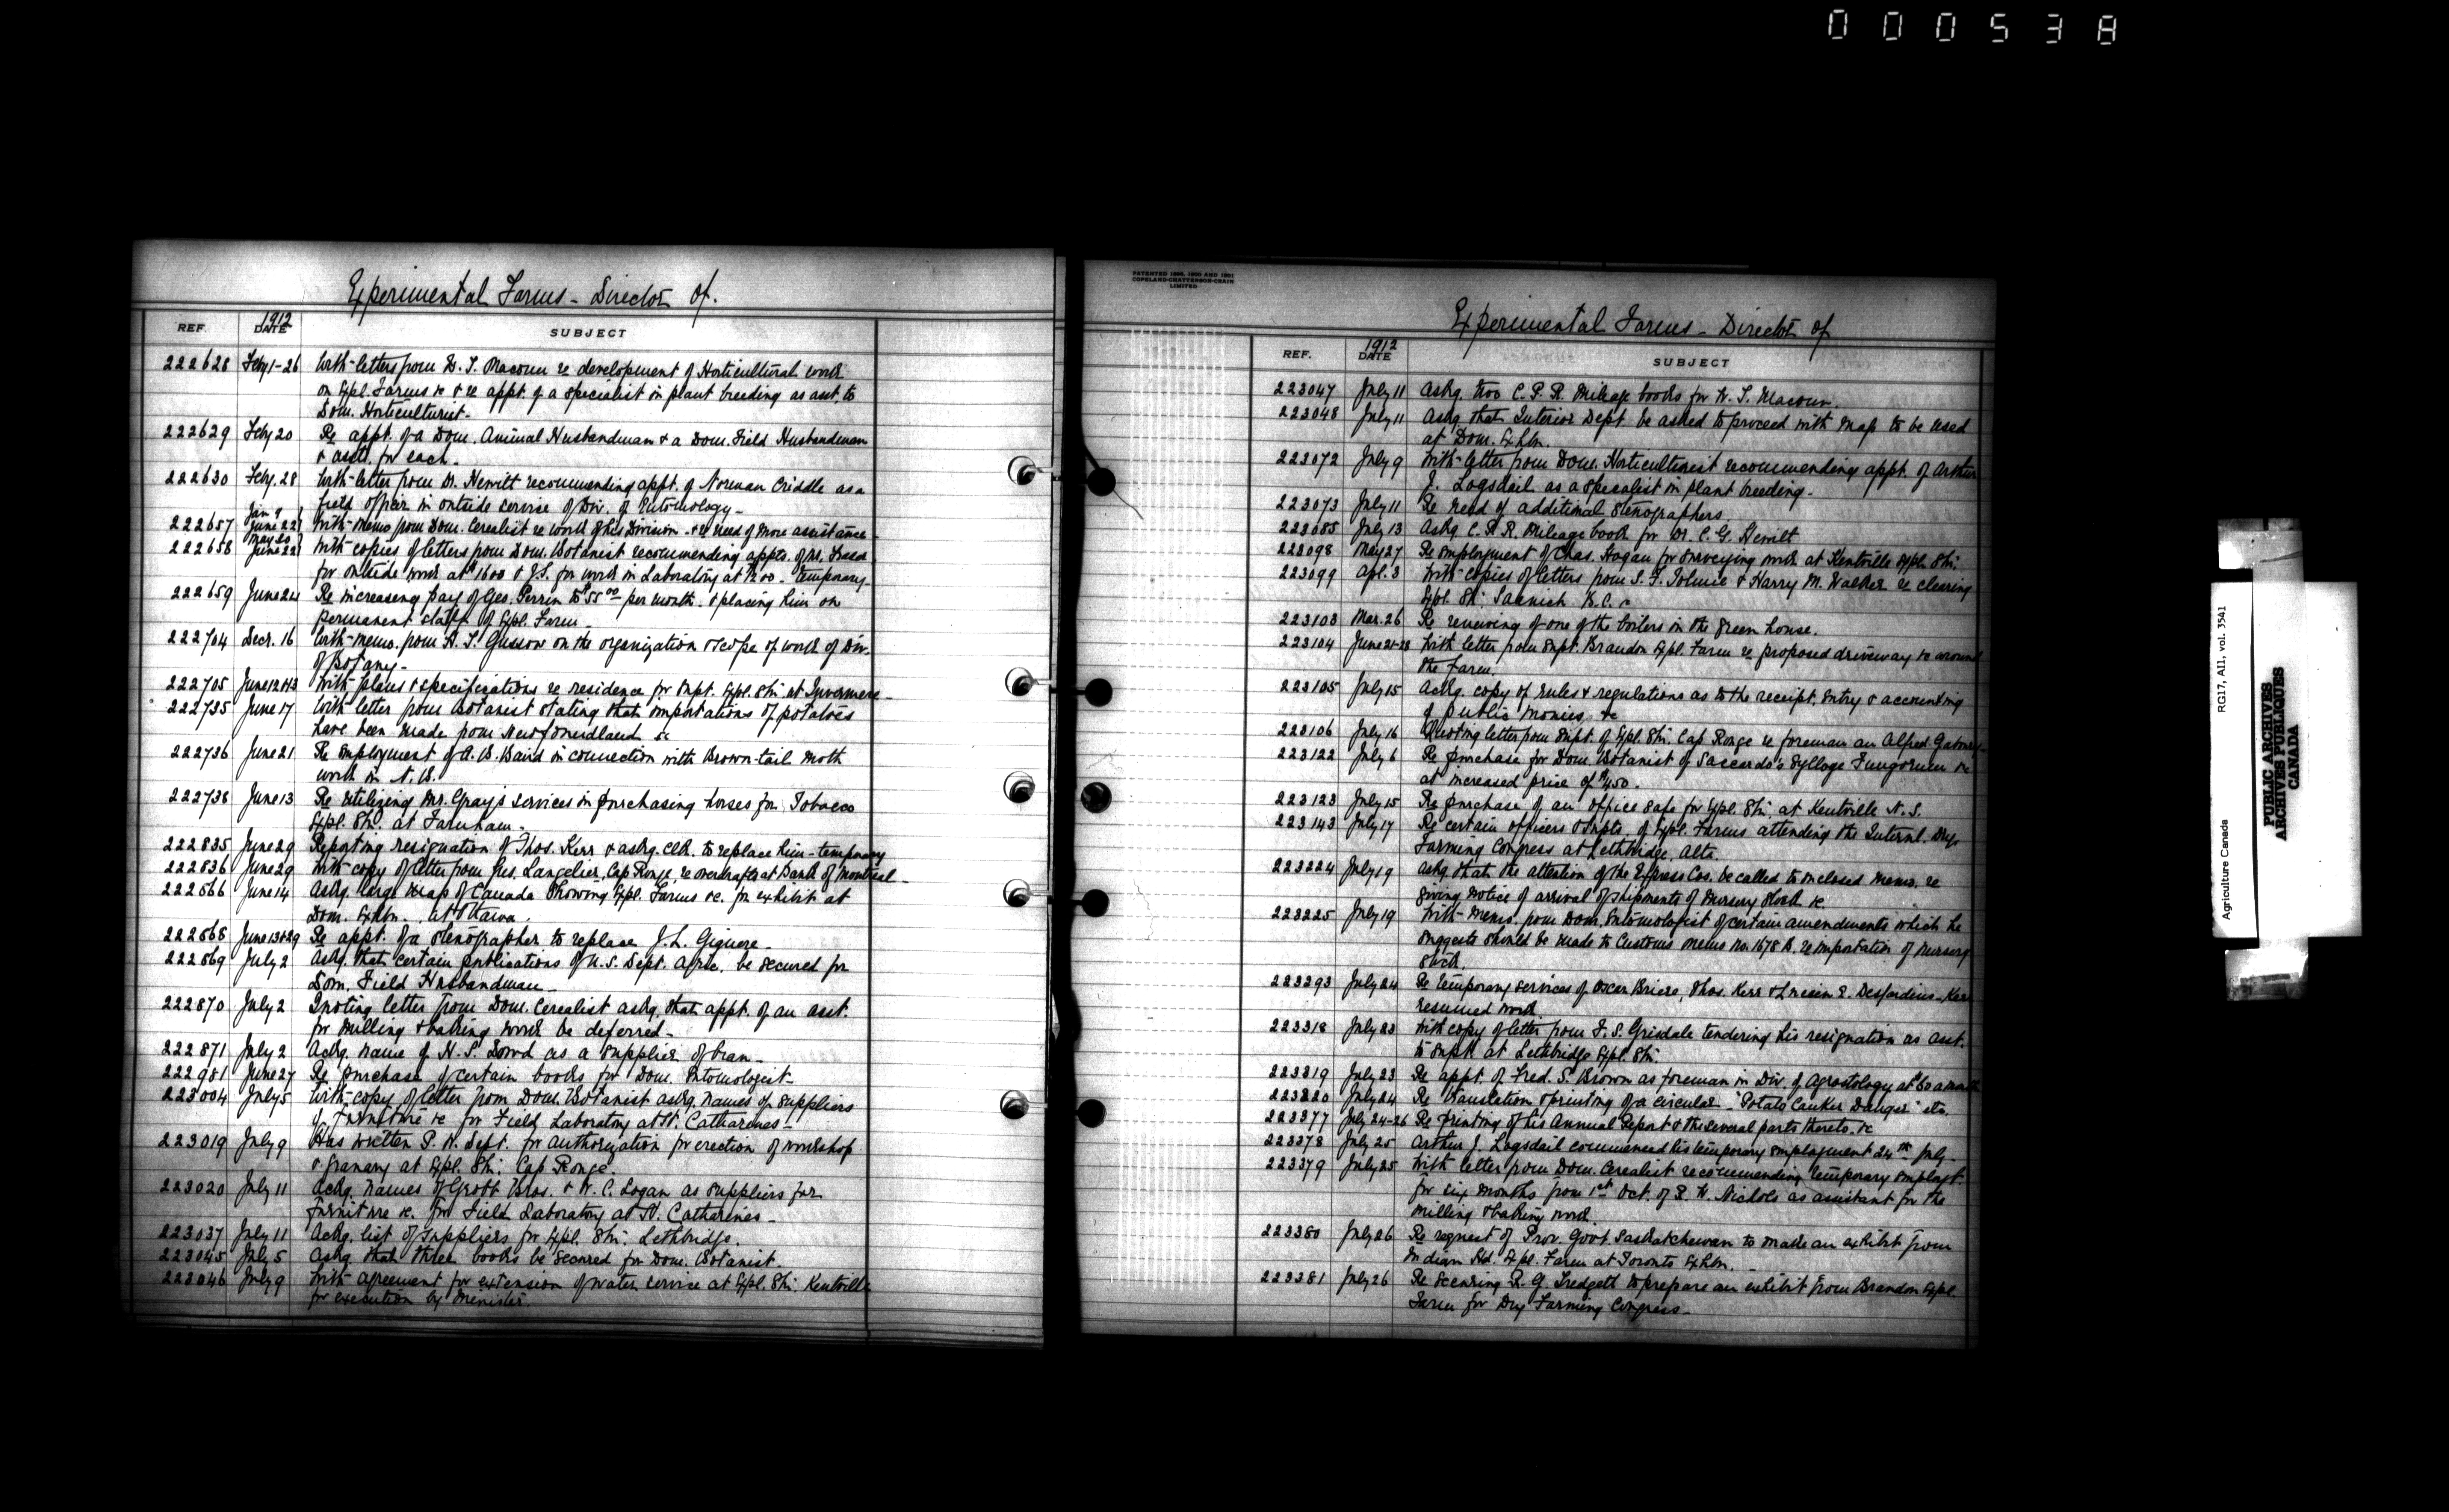 000538
Experimental Farms - Director of.
REF. 1912 DATE SUBJECT
222628 Feby 1-26 With letters from W. T. Macoun re development of Horticultural work
on Expl. Farms &c & re appt. of a specialist in plant breeding as asst. to
Dom. Horticulturist-
222629 Feby 20 Re appt. of a Dom. Animal Husbandman & a Dom. Field Husbandman
& assts. for each.
222630 Feby. 28 With letter from Dr. Hewitt recommending appt. of Norman Criddle as a
field officer in outside service of Div. of Entomology-
222657 Jan 9 June 22 With memo from Dom. Cerealist re work of his Division & re need of more assistance
222658 May 20 June 22 With copies of letters from Dom. Botanist recommending appts. of W.
for outside work at $1600 & J.S. for work in Laboratory at $1200 - temporary-
222659 June 24 Re increasing pay of Geo. Perrin to $55.00 per month & placing him on
permanent staff of Expl. Farm-
222704 Decr. 16 With memo. from H. T. Gussow on the organization & scope of work of Div.
of Botany-
222705 June 12 & 13 With plans & specifications re residence for Supt. Expl. Stn. at Invermere-
222735 June 17 With letter from Botanist stating that importations of potatoes
have been made from Newfoundland &c
222736 June 21 Re employment of A. B. Baird in connection with Brown-tail Moth
work in N. B.
222738 June 13 Re utilizing Mr. Gray's services in purchasing horses for Tobacco
Expl. Stn. at Farnham-
222835 June 29 Reporting resignation of Thos. Kerr & askg. clk. to replace him - temporary
222836 June 29 With copy of letter from Gus. Langelier, Cap Rouge, re overdrafts at Bank of Montreal-
222866 June 14 Askg. large map of Canada showing Expl. Farms &c. for exhibit at
Dom. Exhbn. at Ottawa.
222868 June 13 & 29 Re appt. of a stenographer to replace J. L. Giguere-
222869 July 2 Askg. that certain publications of U.S. Dept. Agric. be secured for
Dom. Field Husbandman-
222870 July 2 Quoting letter from Dom. Cerealist askg. that appt. of an asst.
for milling & baking work be deferred-
222871 July 2 Adtg. name of N. S. Dowd as a supplier of bran-
222981 June 27 Re purchase of certain books for Dom. Entomologist-
223004 July 5 With copy of letter from Dom. Botanist askg. names of suppliers
of furniture &c for Field Laboratory at St. Catharines-
223019 July 9 Has written P. W. Dept. for authorization for erection of workshop
& granary at Expl. Stn. Cap Rouge.
223020 July 11 Adtg. names of Grobb Bros. & W. C. Logan as suppliers for
furniture &c. for Field Laboratory at St. Catharines-
223037 July 11 Adtg. list of suppliers for Expl. Stn. Lethbridge.
223045 July 5 Askg. that three books be secured for Dom. Botanist.
223046 July 9 With agreement for extension of water service at Expl. Stn. Kentville
for execution by Minister.
PATENTED 1899, 1900 AND 1901
COPELAND-CHATTERSON-CRAIN
LIMITED
Experimental Farms - Director of
REF. 1912 DATE SUBJECT
223047 July 11 Askg. two C. P. R. Mileage books for W. T. Macoun.
223048 July 11 Askg. that Interior Dept. be asked to proceed with map to be used
at Dom. Exhbn.
223072 July 9 With letter from Dom. Horticulturist recommending appt. of Arthur
J. Logsdail as a specialist in plant breeding-
223073 July 11 Re need of additional stenographers
223085 July 13 Askg. C. P. R. Mileage book for Dr. C. G. Hewitt
223098 May 27 Re employment of Chas. Hogan for surveying work at Kentville Expl. Stn.
223099 Apl. 3 With copies of letters from S. F. Tolmie & Harry M. Walker re clearing
Expl. Stn. Saanich B.C. &c
223103 Mar. 26 Re renewing of one of the boilers in the green house.
223104 June 21-28 With letter from Supt. Brandon Expl. Farm re proposed driveway &c around
the Farm.
223105 July 15 Askg. copy of rules & regulations as to the receipt, entry & accounting
of public monies &c
223106 July 16 Quoting letter from Supt. of Expl. Stn. Cap Rouge re foreman an Alfred
223122 July 6 Re purchase for Dom. Botanist of Saccardo's Sylloge Fungorum &c
at increased price of $450.
223123 July 15 Re purchase of an office safe for Expl. Stn. at Kentville N. S.
223143 July 17 Re certain officers & Supts. of Expl. Farms attending the Internl. Dry-
Farming Congress at Lethbridge, Alta.
223224 July 19 Askg. that the attention of the Express Cos. be called to enclosed memo. re
giving notice of arrival of shipments of nursery stock &c.
223225 July 19 With memo. from Dom. Entomologist of certain amendments which he
suggests should be made to Customs memo No. 1678 B. re importation of nursery
stock.
223293 July 24 Re temporary services of Oscar Briere, Thos. Kerr & Lucien E. Desjardins - Kerr
resumed work
223318 July 23 With copy of letter from F. S. Grisdale tendering his resignation as asst.
to Supt. at Lethbridge Expl. Stn.
223319 July 23 Re appt. of Fred. S. Brown as foreman in Div. of Agrostology at $60 a month
223320 July 24 Re translation & printing of a circular - "Potato Canker Danger" etc.
223377 July 24-26 Re printing of his Annual Report & the several parts thereto. &c
223378 July 25 Arthur J. Logsdail commenced his temporary employment 24th July-
223379 July 25 With letter from Dom. Cerealist recommending temporary employt.
for six months from 1st Oct. of R. W. Nichols as assistant for the
milling & baking work.
223380 July 26 Re request of Prov. Govt Saskatchewan to make an exhibit from
Indian Hd. Expl. Farm at Toronto Exhbn.
223381 July 26 Re securing R. G. Tredgett to prepare an exhibit from Brandon Expl.
Farm for Dry Farming Congress-
Agriculture Canada RG17, A11, vol. 3541
PUBLIC ARCHIVES
ARCHIVES PUBLIQUES
CANADA